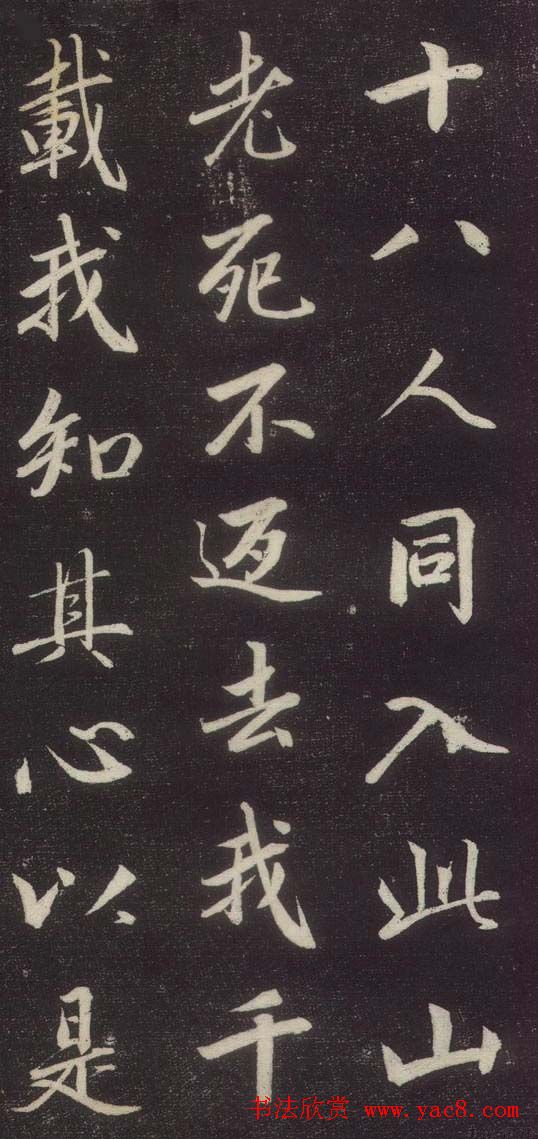 十八人同入此山
老死不返去我千
載我知其心以是
书法欣赏 www.yac8.com